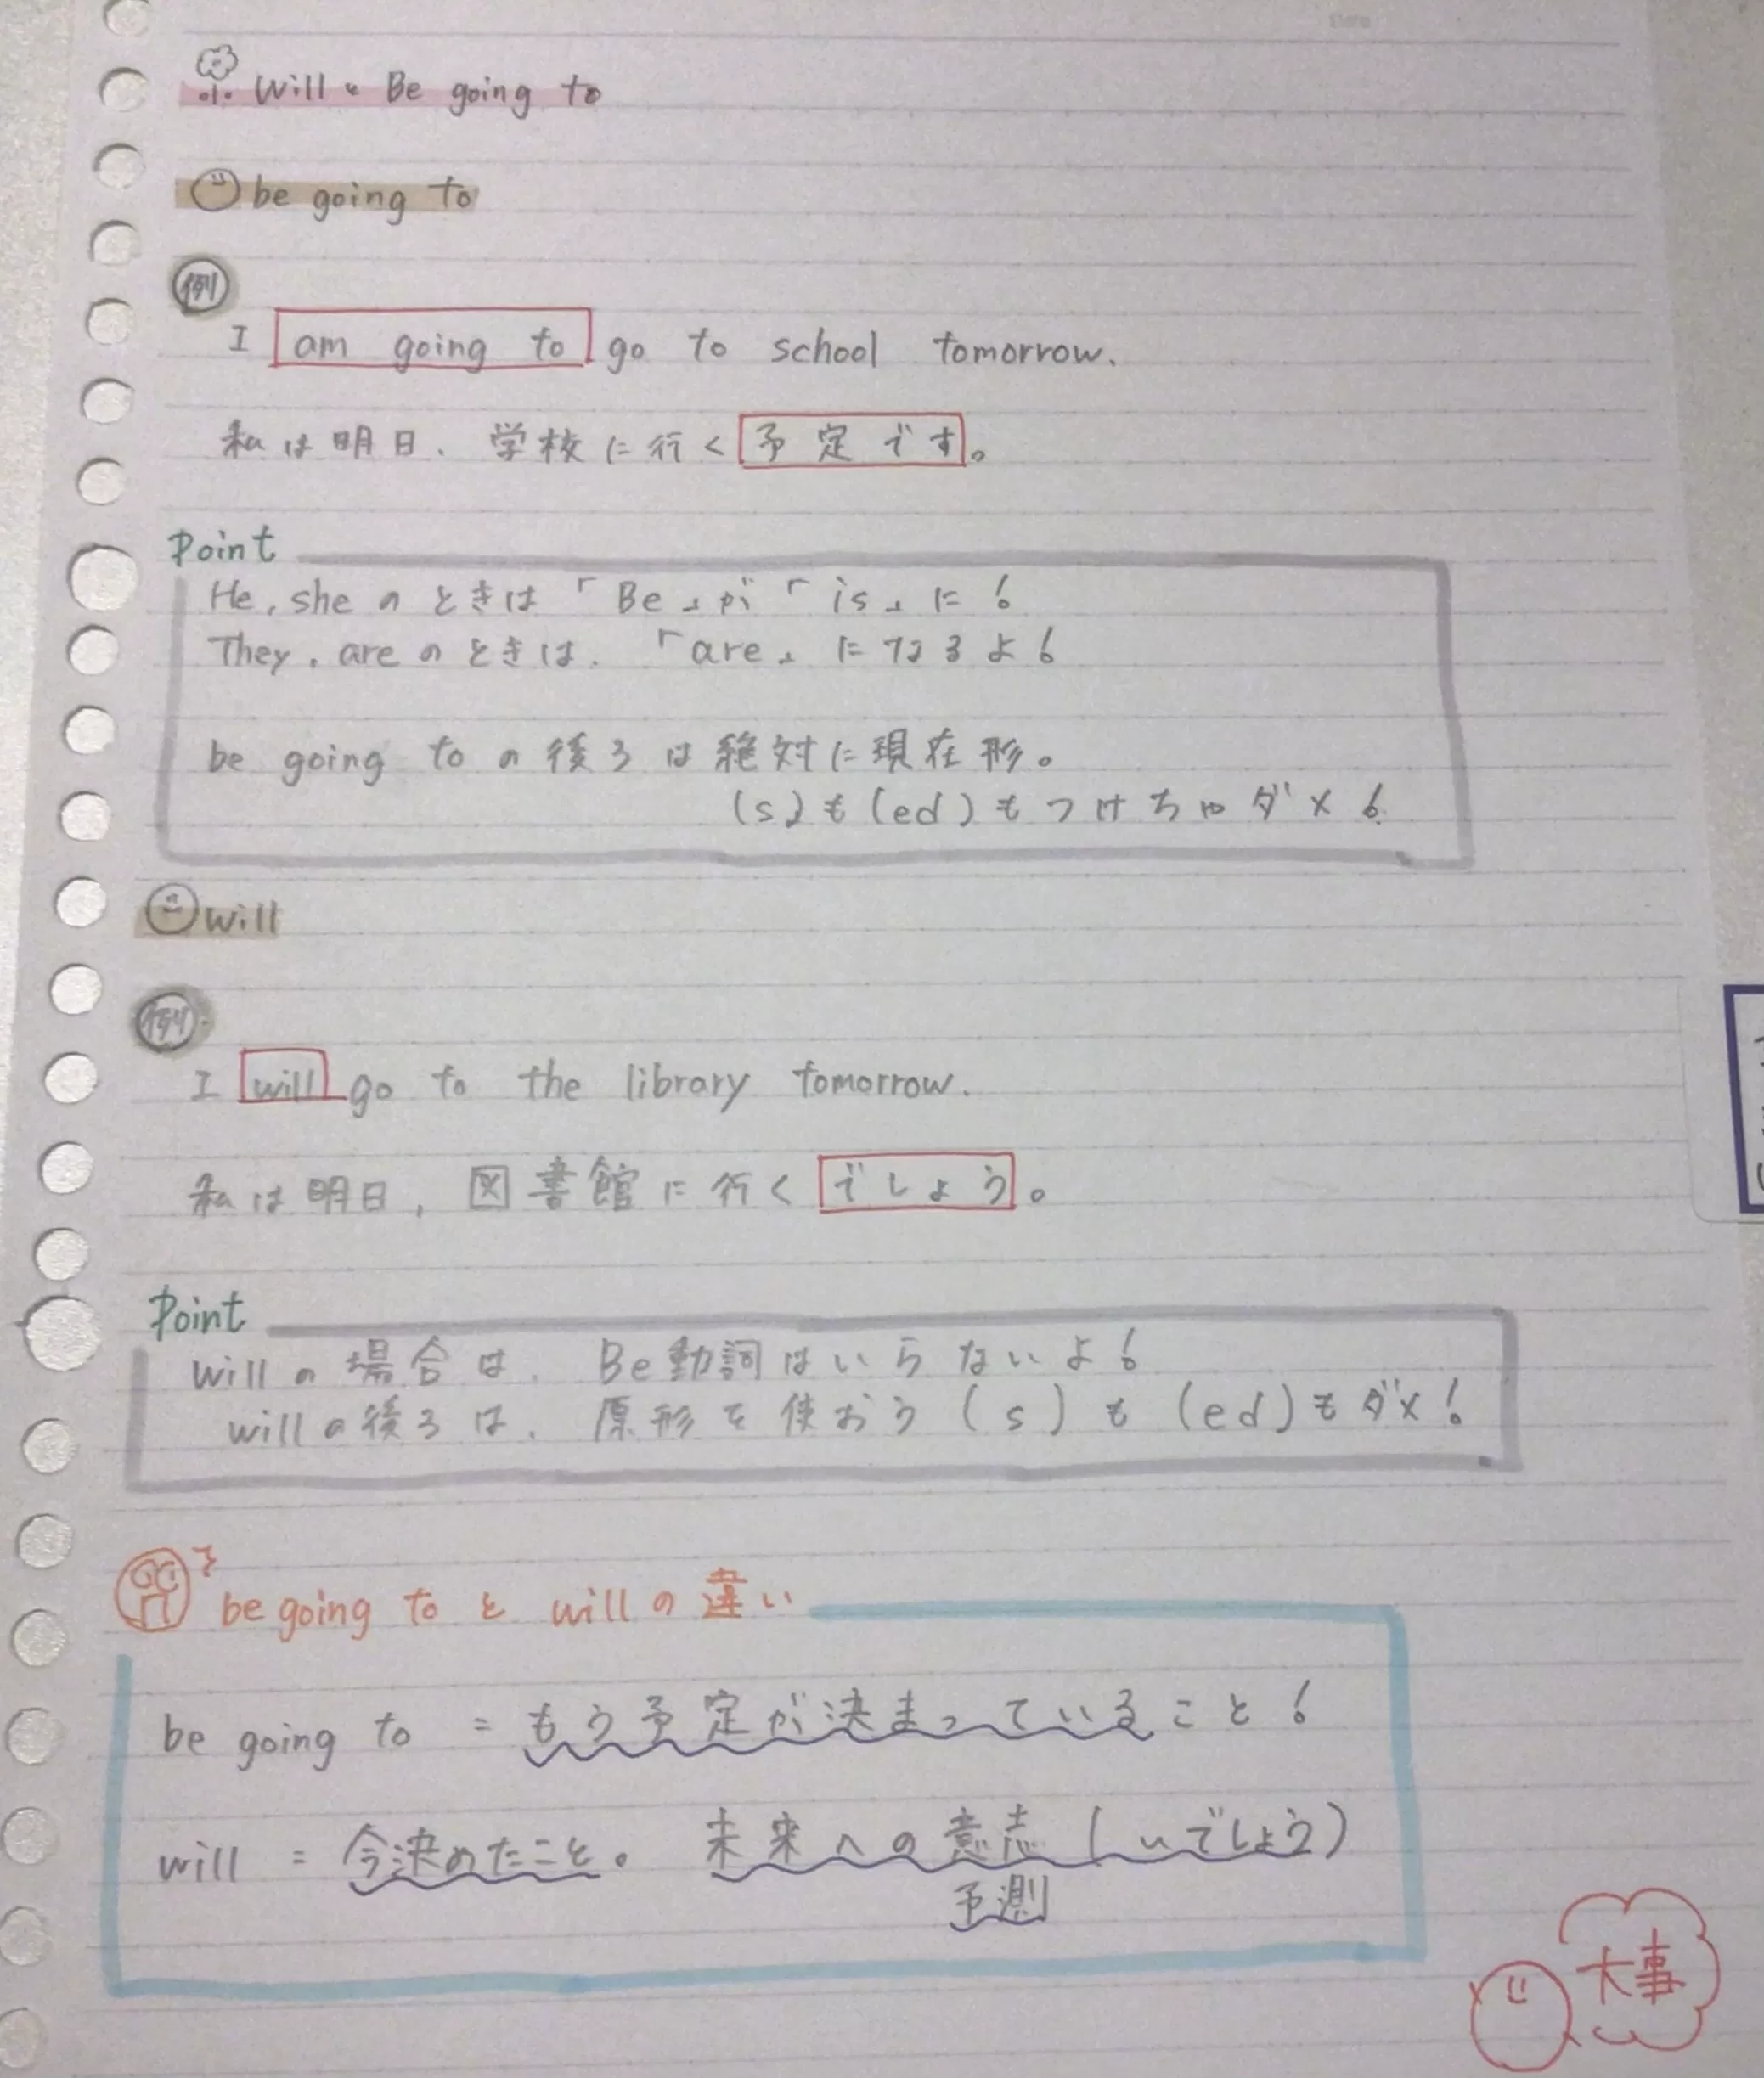 Will と Be going to
be going to
例
I am going to go to school tomorrow.
私は明日、学校に行く予定です。
Point
He, she のときは「Be」が「is」に!
They, are のときは、「are」になるよ!
be going to の後ろは絶対に現在形。
(s)も(ed)もつけちゃダメ!
will
例
I will go to the library tomorrow.
私は明日、図書館に行くでしょう。
Point
willの場合は、Be動詞はいらないよ!
willの後ろは、原形を使おう(s)も(ed)もダメ!
be going to と willの違い
be going to = もう予定が決まっていること!
will = 今決めたこと。未来への意志(〜でしょう)
予測
大事